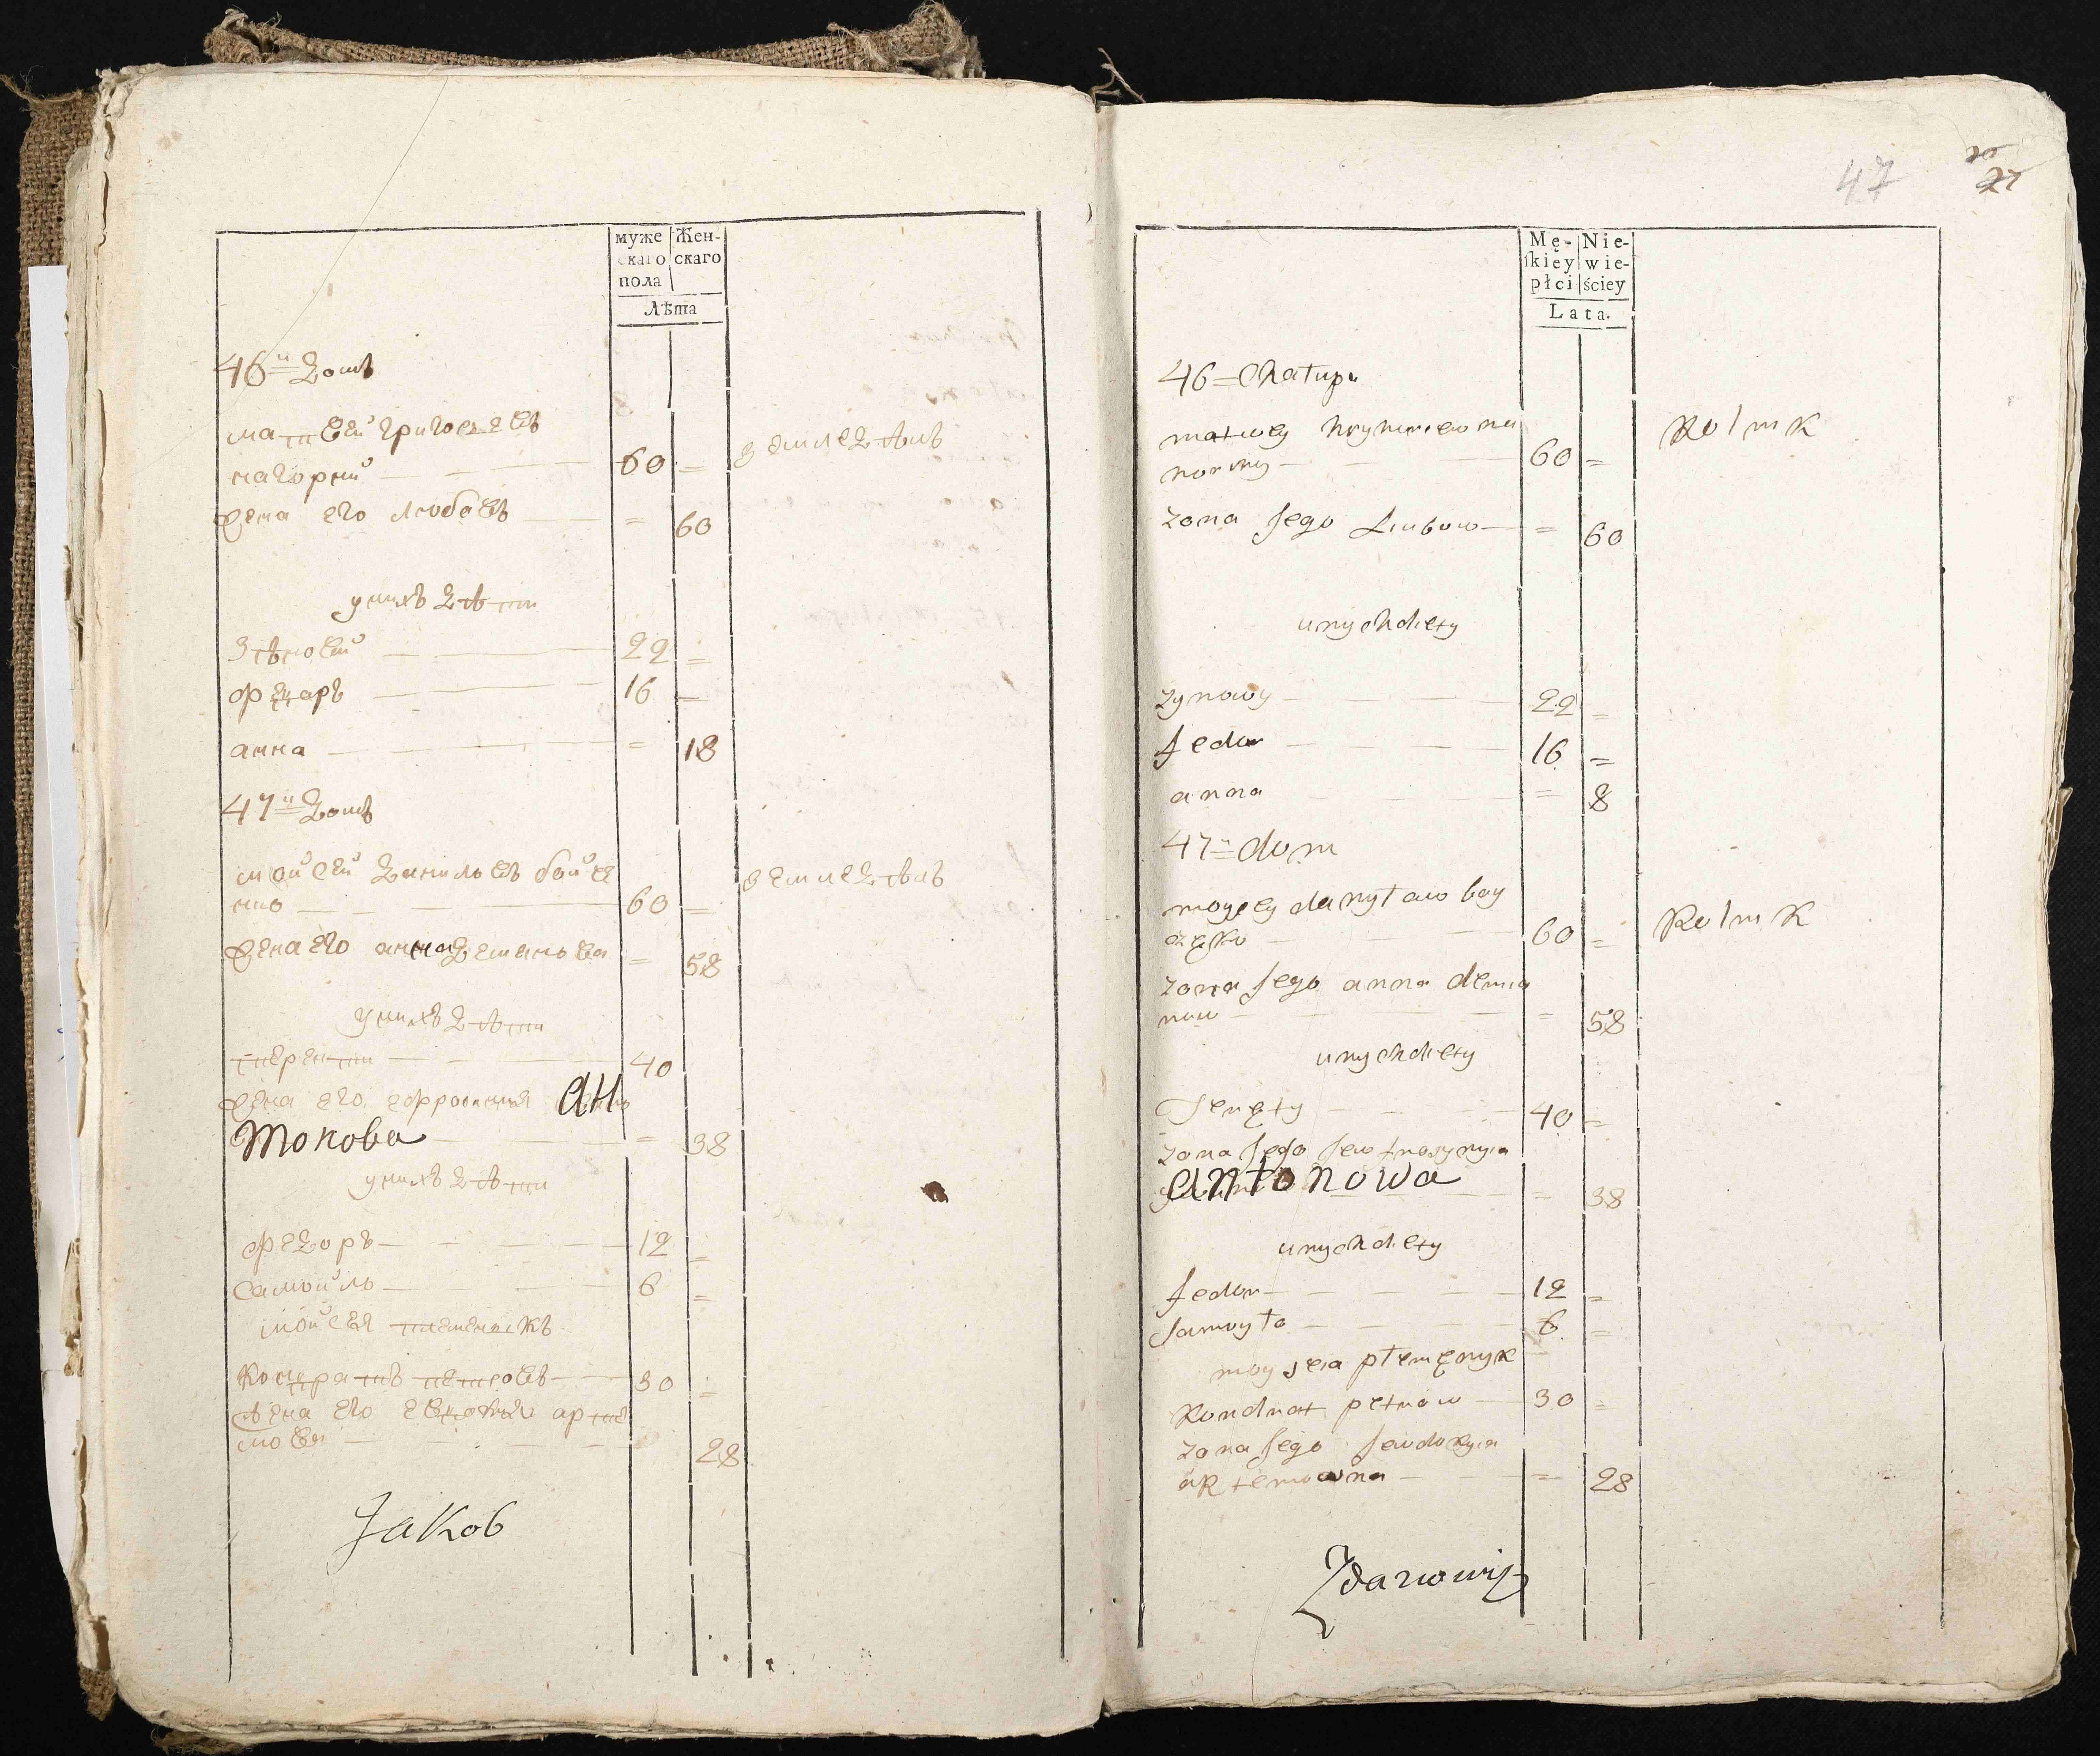 муже
скаго
пола
Жен-
скаго
Лѣта
46й домъ
матвѣй григоревъ
нагорни
60 =
земледѣлъ
жена его любовъ
= 60
унихъ дѣти
Зѣновей 22 =
федаръ 16 =
анна = 18
47й домъ
мойсей даниловъ бойче
нко 60 =
земледѣлъ
жена его анна деменьева
= 58
унихъ дѣти
терентии 40
жена его еффросиния Ан
тонова = 38
унихъ дѣти
федоръ 12 =
самойло 6 =
мойсея племеникъ
кондратъ петровъ 30 =
жена его евдокия арте
мова 28
Jakob
47
27
Mę-
skiey
płci
Nie-
wie-
ściey
Lata.
46 = Chałupa
matwey hryhoriew na
horny 60 =
Rolnik
zona Jego Liubow = 60
unych diety
zynowy 22 =
fedor 16 =
anna = 8
47й dom
moysey danyław boy
częko 60 =
Rolnik
zona Jego anna demia
now = 58
unych diety
Teręty 40 =
zona Jego Jewfrosynyia
Antonowa = 38
unych diety
fedor 12 =
samoyło 6 =
moyseia płemęnyk
Kondrat petrow 30 =
zona Jego Jewdokyia
artemowna = 28